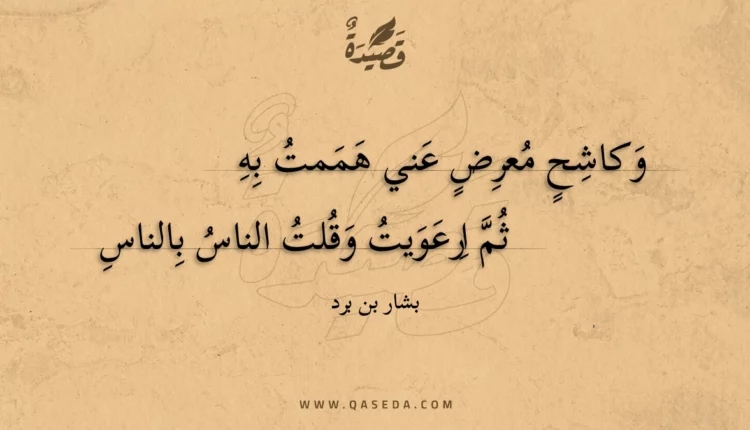 قَصِيْدَةٌ
وَكاشِحٍ مُعرِضٍ عَني هَمَمتُ بِهِ
ثُمَّ اِرعَوَيتُ وَقُلتُ الناسُ بِالناسِ
بشار بن برد
WWW.QASEDA.COM